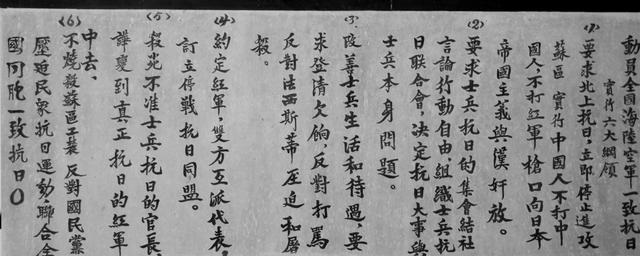 動員全國海陸空軍一致抗日
實行六大綱領
(1)要求北上抗日，立即停止進攻
蘇區 實行中國人不打中
國人，不打紅軍 槍口向日本
帝國主義與漢奸放。
(2)要求士兵抗日的集會結社
言論行動自由組織士兵抗
日联合會，決定抗日大事與
士兵本身問題。
(3)改善士兵生活和待遇，要
求發清欠餉，反對打罵
反對法西斯蒂压迫和屠
殺。
(4)約定紅軍，雙方互派代表。
訂立停戰抗日同盟。
(5)殺死不准士兵抗日的官長，
譁變到真正抗日的紅軍
中去、
(6)不燒殺蘇區工農 反對國民黨
壓迫民衆抗日運動，聯合全
國同胞一致抗日〇